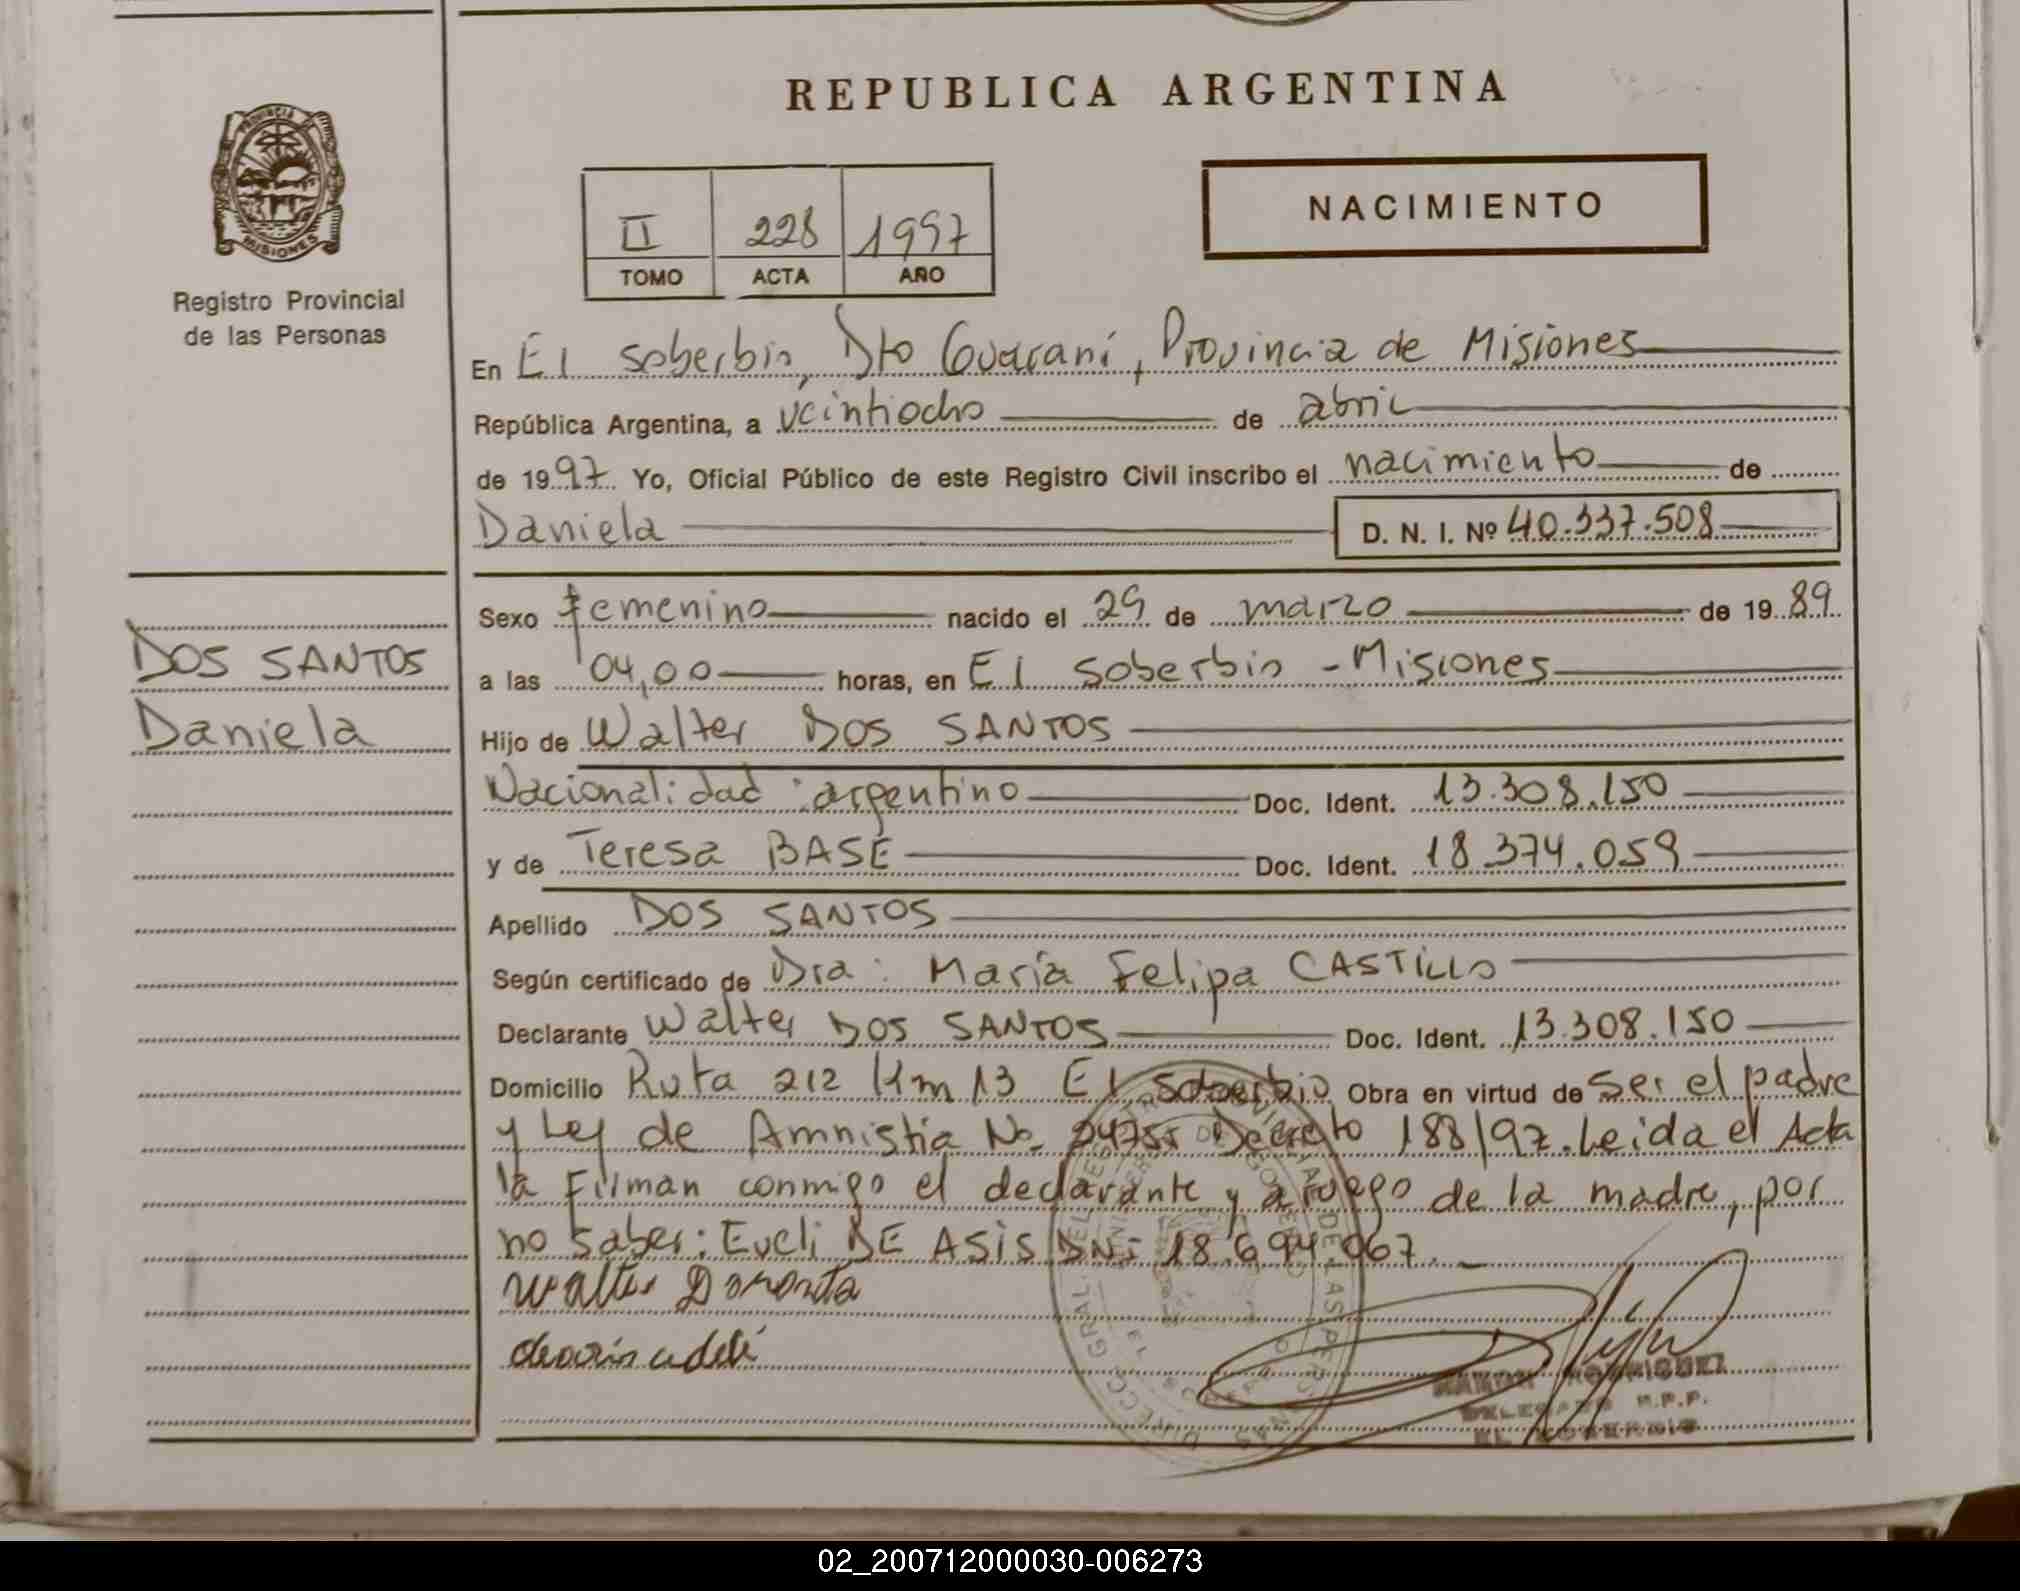 REPUBLICA ARGENTINA
PROVINCIA DE
MISIONES
Registro Provincial
de las Personas
NACIMIENTO
II 228 1997
TOMO ACTA AÑO
En El soberbio, Dto Guaraní, Provincia de Misiones
República Argentina, a veintiocho de abril
de 1997 Yo, Oficial Público de este Registro Civil inscribo el nacimiento de
Daniela D. N. I. Nº 40.337.508
DOS SANTOS
Daniela
Sexo femenino nacido el 29 de marzo de 1989
a las 04,00 horas, en El soberbio - Misiones
Hijo de Walter DOS SANTOS
Nacionalidad: argentino Doc. Ident. 13.308.150
y de Teresa BASE Doc. Ident. 18.374.059
Apellido DOS SANTOS
Según certificado de Dra: María Felipa CASTILLO
Declarante Walter DOS SANTOS Doc. Ident. 13.308.150
Domicilio Ruta 212 Km 13 El soberbio Obra en virtud de Ser el padre
y Ley de Amnistia No. 24755 Decreto 188/97. Leida el Acta
la Firman conmigo el declarante y a ruego de la madre, por
no saber: Eucli DE ASIS DNI 18.694.067.
Walter
RAMON RODRIGUEZ
DELEGADO R.P.P.
EL SOBERBIO
02_200712000030-006273